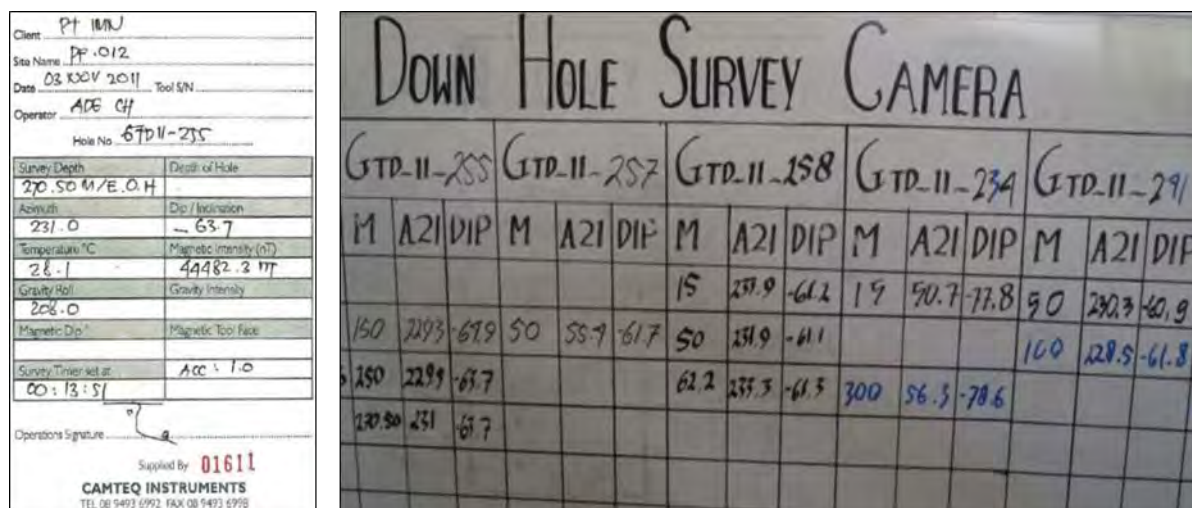 Client PT IMN
Site Name PP.012
Date 03 NOV 2011 Tool S/N
Operator ADE CH
Hole No
Survey Depth Depth of Hole
270.50 M/E.O.H
Azimuth Dip / Inclination
231.0 - 63.7
Temperature °C Magnetic Intensity (nT)
28.1 44482.3 nT
Gravity Roll Gravity Intensity
208.0
Magnetic Dip ° Magnetic Tool Face
Survey Timer set at Acc : 1.0
00:13:51
Operations Signature
Supplied By 01611
CAMTEQ INSTRUMENTS
TEL 08 9493 6992 FAX 08 9493 6998
DOWN HOLE SURVEY CAMERA
GTD-11-255 GTD-11-257 GTD-11-258 GTD-11-234 GTD-11-291
M AZI DIP M AZI DIP M AZI DIP M AZI DIP M AZI DIP
15 -61.2 19 90.7 -77.8 50 230.3 -60.9
150 50 -61.7 50 -61.1 100 228.5 -61.8
250 -63.7 62.2 -61.3 300 56.3 -78.6
270.50 231 -63.7